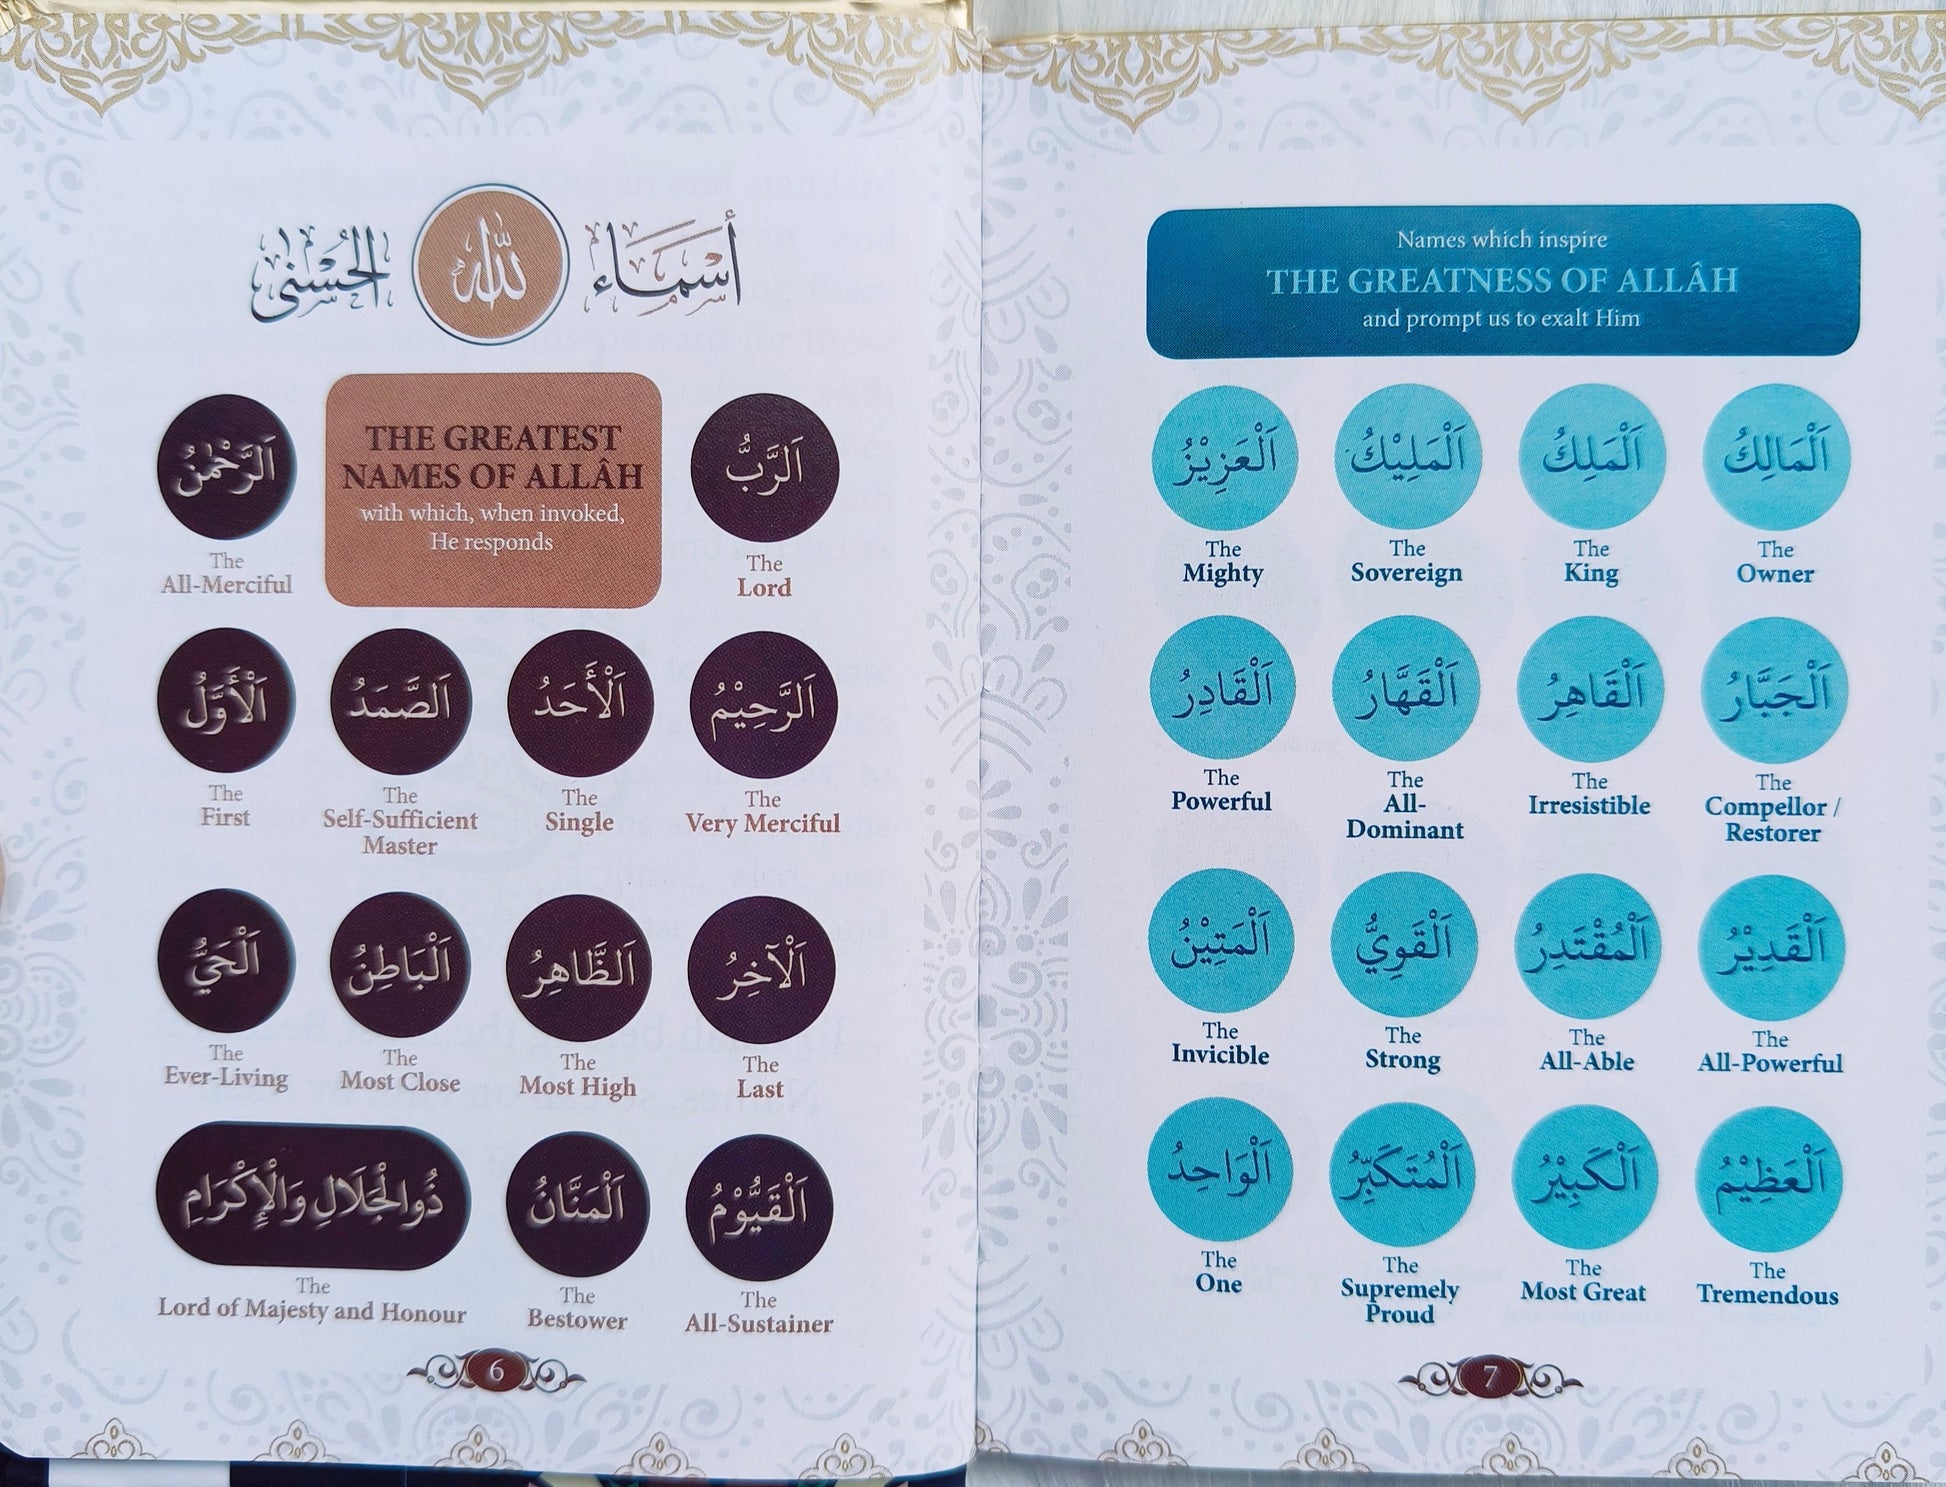 أسماء الله الحسنى
THE GREATEST
NAMES OF ALLÂH
with which, when invoked,
He responds
اَلرَّبُّ
The
Lord
اَلرَّحْمٰنُ
The
All-Merciful
اَلرَّحِيْمُ
The
Very Merciful
اَلْأَحَدُ
The
Single
اَلصَّمَدُ
The
Self-Sufficient
Master
اَلْأَوَّلُ
The
First
اَلْآخِرُ
The
Last
اَلظَّاهِرُ
The
Most High
اَلْبَاطِنُ
The
Most Close
اَلْحَيُّ
The
Ever-Living
اَلْقَيُّوْمُ
The
All-Sustainer
اَلْمَنَّانُ
The
Bestower
ذُوالْجَلَالِ وَالْإِكْرَامِ
The
Lord of Majesty and Honour
6
Names which inspire
THE GREATNESS OF ALLÂH
and prompt us to exalt Him
اَلْمَالِكُ
The
Owner
اَلْمَلِكُ
The
King
اَلْمَلِيْكُ
The
Sovereign
اَلْعَزِيْزُ
The
Mighty
اَلْجَبَّارُ
The
Compellor /
Restorer
اَلْقَاهِرُ
The
Irresistible
اَلْقَهَّارُ
The
All-
Dominant
اَلْقَادِرُ
The
Powerful
اَلْقَدِيْرُ
The
All-Powerful
اَلْمُقْتَدِرُ
The
All-Able
اَلْقَوِيُّ
The
Strong
اَلْمَتِيْنُ
The
Invicible
اَلْعَظِيْمُ
The
Tremendous
اَلْكَبِيْرُ
The
Most Great
اَلْمُتَكَبِّرُ
The
Supremely
Proud
اَلْوَاحِدُ
The
One
7